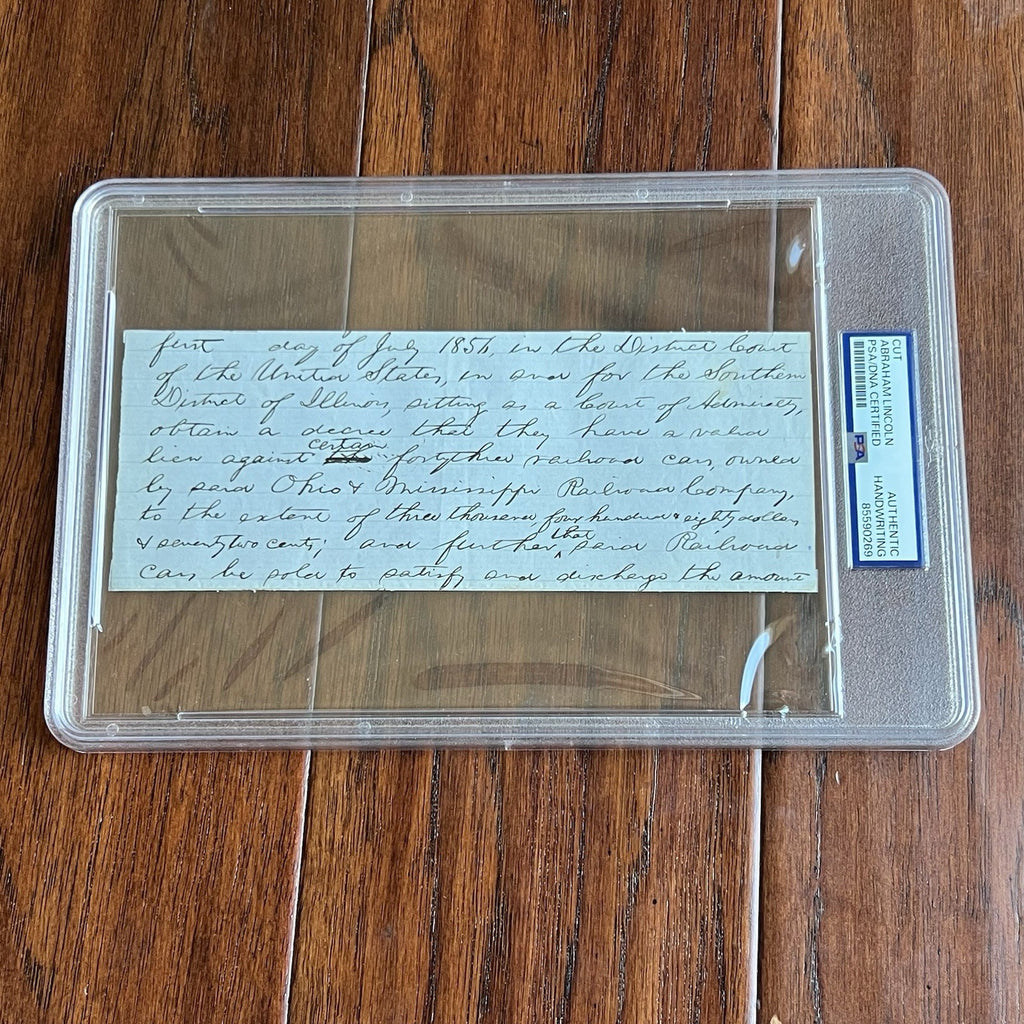 first day of July 1856, in the District Court
of the United States, in and for the Southern
District of Illinois, sitting as a Court of Admiralty,
obtain a decree that they have a valid
certain
lien against fortythree railroad cars, owned
by said Ohio & Mississippi Railroad Company,
to the extent of three thousand four hundred & eighty dollars
& seventytwo cents; and further, that said Railroad
Cars be sold to satisfy and discharge the amount
CUT
ABRAHAM LINCOLN
PSA/DNA CERTIFIED
PSA
AUTHENTIC
HANDWRITING
85590269